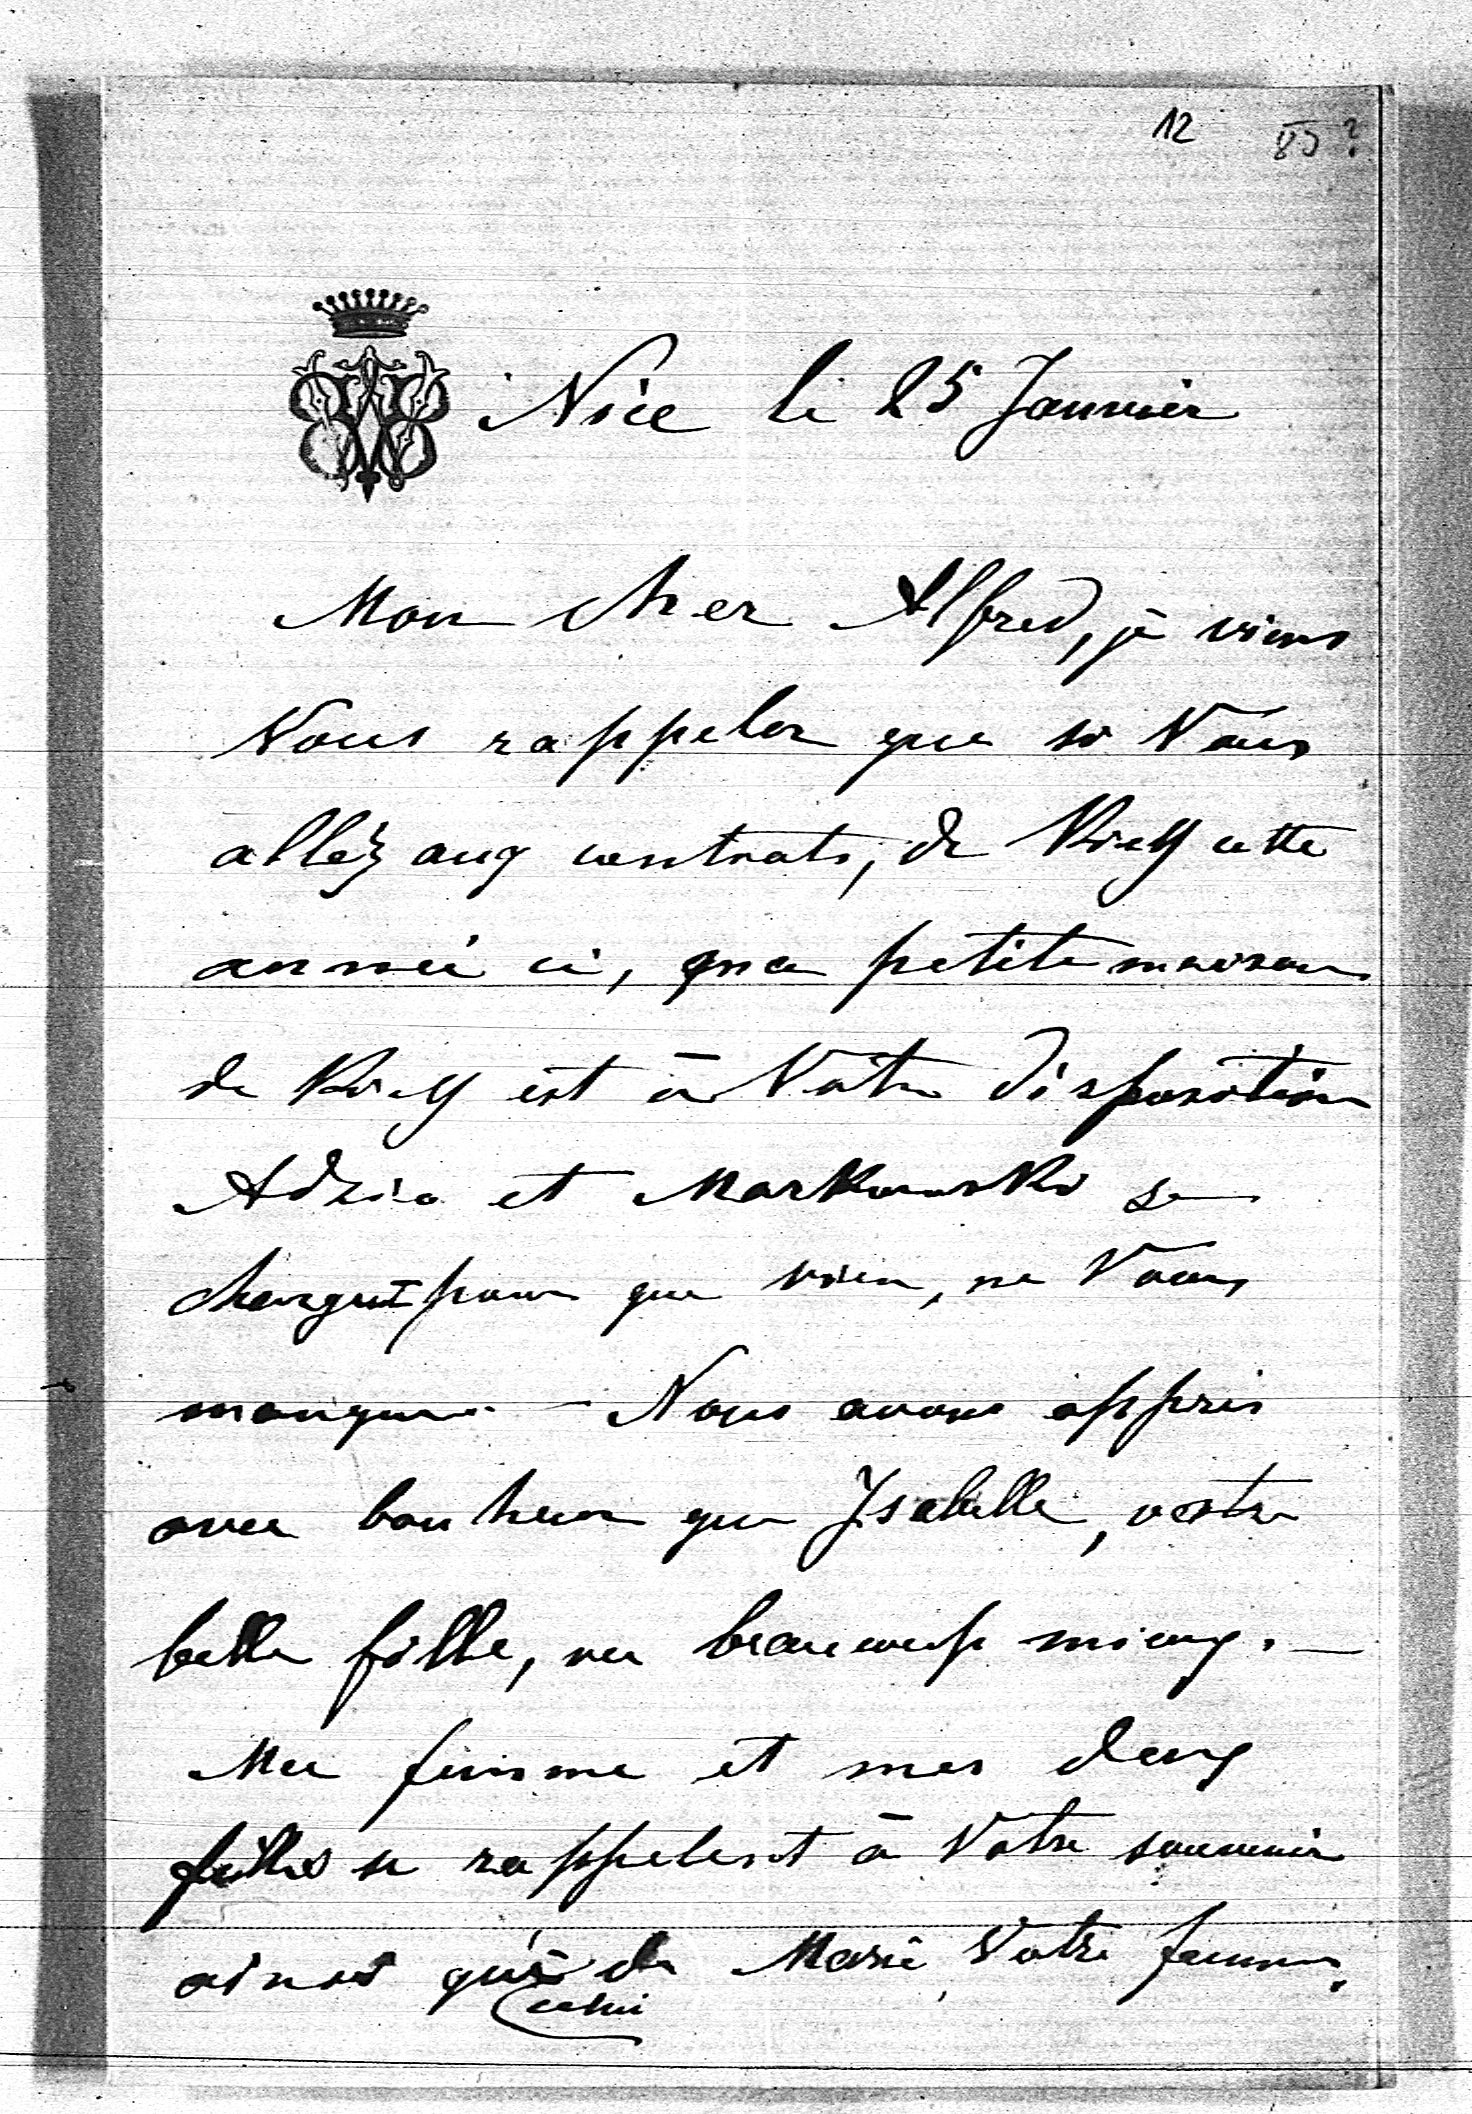 12 85 ?
Nice le 25 Janvier
Mon cher Alfred, je viens
Vous rappeler que si Vous
allez aux contrats, de Kieff cette
année ci, ma petite maison
de Kieff est à Votre disposition
Adzio et Markowski se
chargent pour que rien, ne Vous
manque. – Nous avons appris
avec bonheur que Isabelle, votre
belle fille, va beaucoup mieux. –
Ma femme et mes deux
filles se rappelent à Votre souvenir
ainsi qu'à de Marie Votre femme,
celui